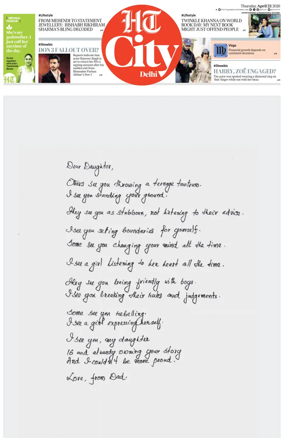 Thursday, April 23, 2026
#Lifestyle
FROM MESSIER TO STATEMENT
JEWELLERY: RISHABH RIKHIRAM
SHARMA'S BLING, DECODED
#Cinematic
DON'T FALL OUT OVER!
HT
City
Delhi
#Lifestyle
TWINKLE KHANNA ON WORLD
BOOK DAY: MY NEXT BOOK
MIGHT JUST OFFEND PEOPLE
Virgo
HARRY, ZOË ENGAGED?
Dear Daughter,
Others see you throwing a teenage tantrum.
I see you standing your ground.
They see you as stubborn, not listening to their advice.
I see you setting boundaries for yourself.
Some see you changing your mind all the time.
I see a girl listening to her heart all the time.
They see you being friendly with boys
I see you breaking their rules and judgements.
Some see you rebelling.
I see a girl expressing herself.
I see you, my daughter
16 and already owning your story
And I couldn't be more proud.
Love, from Dad.